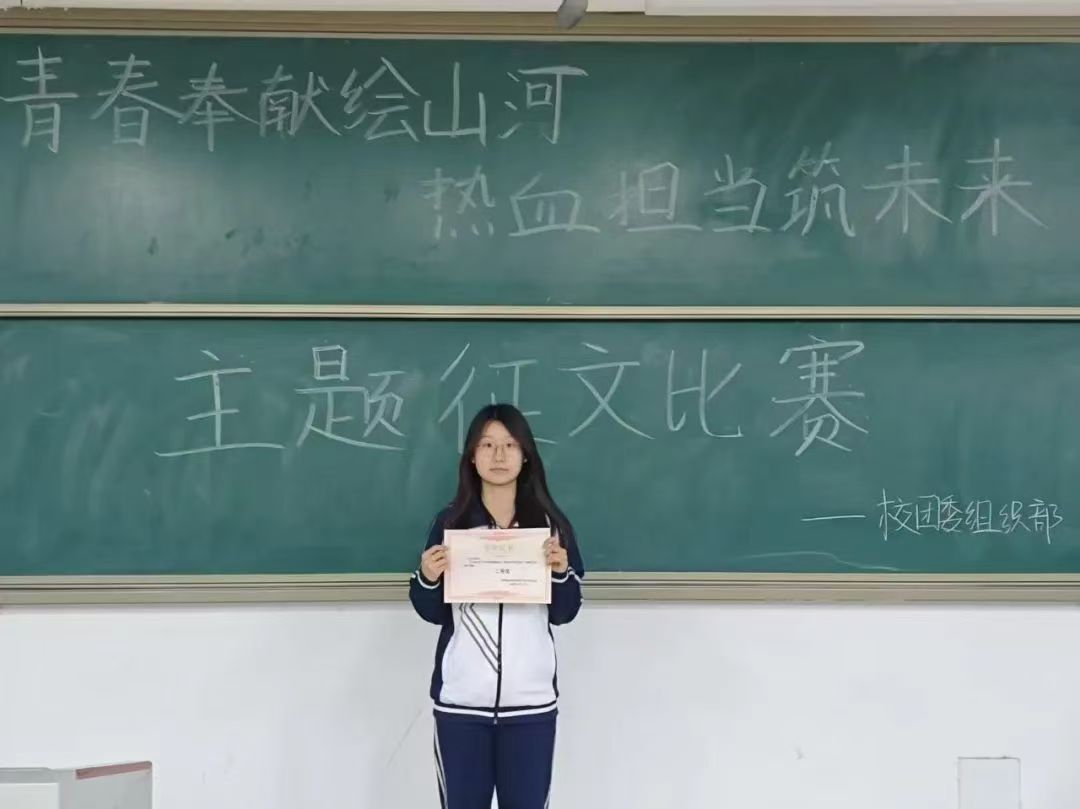 青春奉献绘山河
热血担当筑未来
主题征文比赛
——校团委组织部
荣誉证书
二等奖